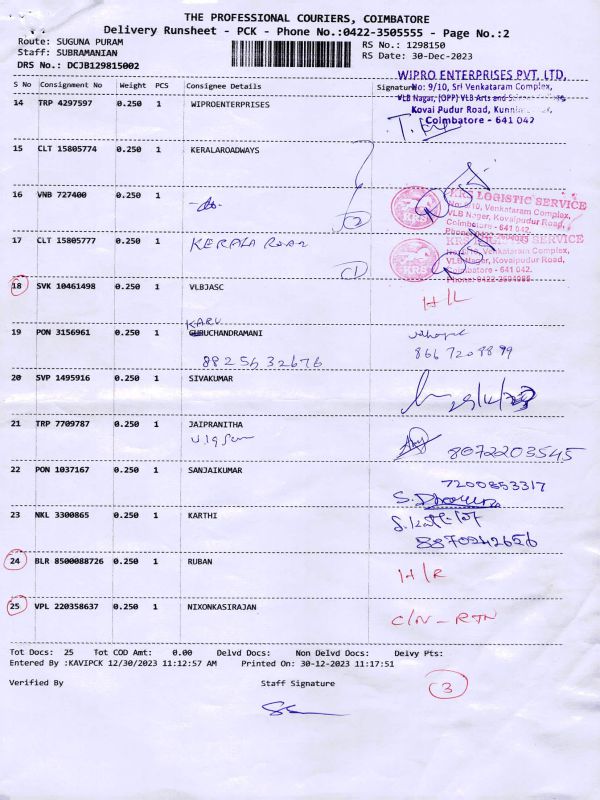 THE PROFESSIONAL COURIERS, COIMBATORE
Delivery Runsheet - PCK - Phone No.:0422-3505555 - Page No.:2
Route: SUGUNA PURAM
Staff: SUBRAMANIAN
DRS No.: DCJB129815002
RS No.: 1298150
RS Date: 30-Dec-2023
S No Consignment No Weight PCS Consignee Details Signature
WIPRO ENTERPRISES PVT. LTD.
No: 9/10, Sri Venkataram Complex,
VLB Nagar, (OPP) VLB Arts and
Kovai Pudur Road,
Coimbatore - 641 042
14 TRP 4297597 0.250 1 WIPROENTERPRISES
15 CLT 15805774 0.250 1 KERALAROADWAYS
16 VNB 727400 0.250 1
2
KRS LOGISTIC SERVICE
No. 9/10, Venkataram Complex,
VLB Nager, Kovaipudur Road,
Coimbatore - 641 042.
17 CLT 15805777 0.250 1 KERALA ROAD
1
KRS
VLB Nager, Kovaipudur Road,
Coimbatore - 641 042.
18 SVK 10461498 0.250 1 VLBJASC
H/L
KARU
19 PON 3156961 0.250 1 GURUCHANDRAMANI
8825632676
8667208899
20 SVP 1495916 0.250 1 SIVAKUMAR
21 TRP 7709787 0.250 1 JAIPRANITHA
8072203545
22 PON 1037167 0.250 1 SANJAIKUMAR
7200853317
23 NKL 3300865 0.250 1 KARTHI
8870942656
24 BLR 8500088726 0.250 1 RUBAN
H/R
25 VPL 220358637 0.250 1 NIXONKASIRAJAN
C/N - RTN
Tot Docs: 25 Tot COD Amt: 0.00 Delvd Docs: Non Delvd Docs: Delvy Pts:
Entered By :KAVIPCK 12/30/2023 11:12:57 AM Printed On: 30-12-2023 11:17:51
Verified By Staff Signature
3